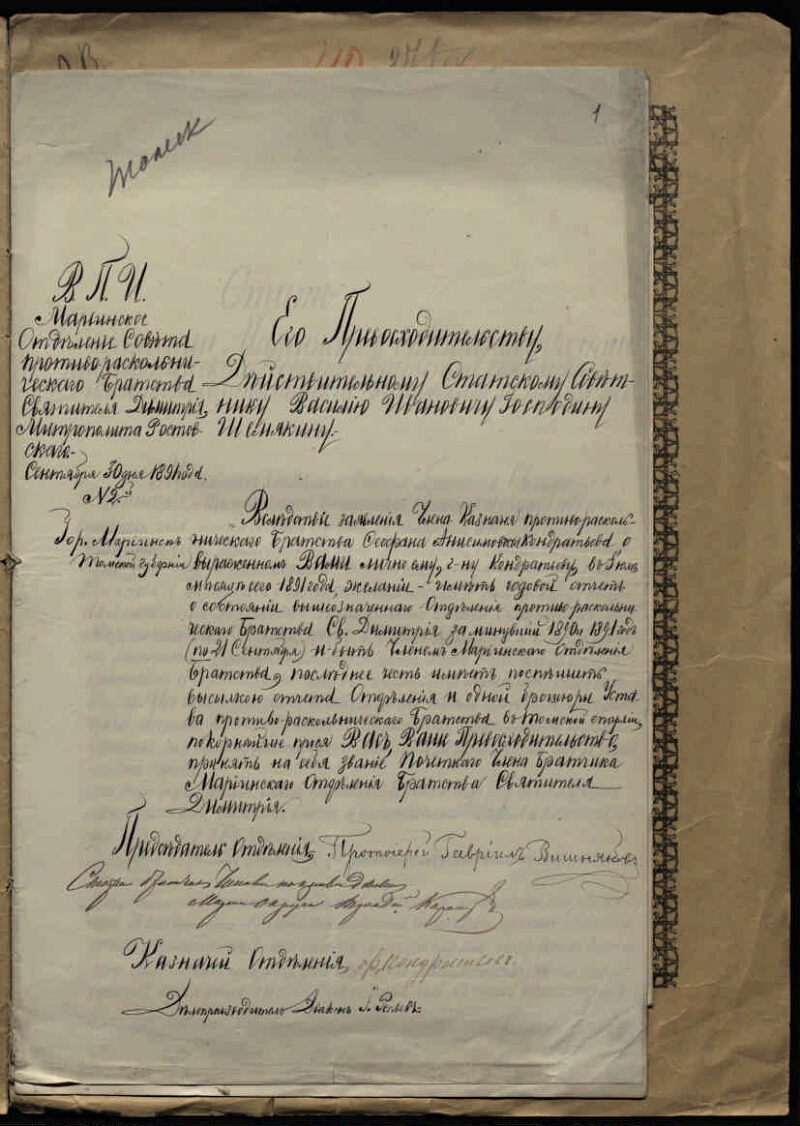 1
Томск
В. П. И.
Маріинское
Отдѣленіе Совѣта
противо-расколь-
ническаго Братства
Святителя Димитрія,
Митрополита Ростов-
скаго.
Сентября 30 дня 1891 года.
№ 2.
Гор. Маріинскъ
Томской губерніи
Его Превосходительству,
Дѣйствительному Статскому Совѣт-
нику Василію Ивановичу Господину
Шемякину.
Вслѣдствіе заявленія Члена Казначея противо-расколь-
ническаго Братства Ѳеофана Анисимовича Кондратьева о
выраженномъ Вами лично ему, г-ну Кондратьеву, въ Іюлѣ
мѣсяцѣ сего 1891 года, желаніи - имѣть годовой отчетъ
о состояніи вышеозначеннаго Отдѣленія противо-расколь-
ническаго Братства Св. Димитрія за минувшій 1890/1891 годъ
(по 21 Сентября) и быть Членомъ Маріинскаго Отдѣленія
Братства, послѣднее честь имѣетъ поспѣшить
высылкою отчета Отдѣленія и одной брошюры Уста-
ва противо-раскольническаго Братства въ Томской епархіи,
покорнѣйше прося Васъ, Ваше Превосходительство,
принять на себя званіе Почетнаго Члена Братчика
Маріинскаго Отдѣленія Братства Святителя
Димитрія.
Предсѣдатель Отдѣленія, Протоіерей Гавріилъ Вишняковъ
Казначей Отдѣленія, Ѳ. Кондратьевъ.
Дѣлопроизводитель Діаконъ